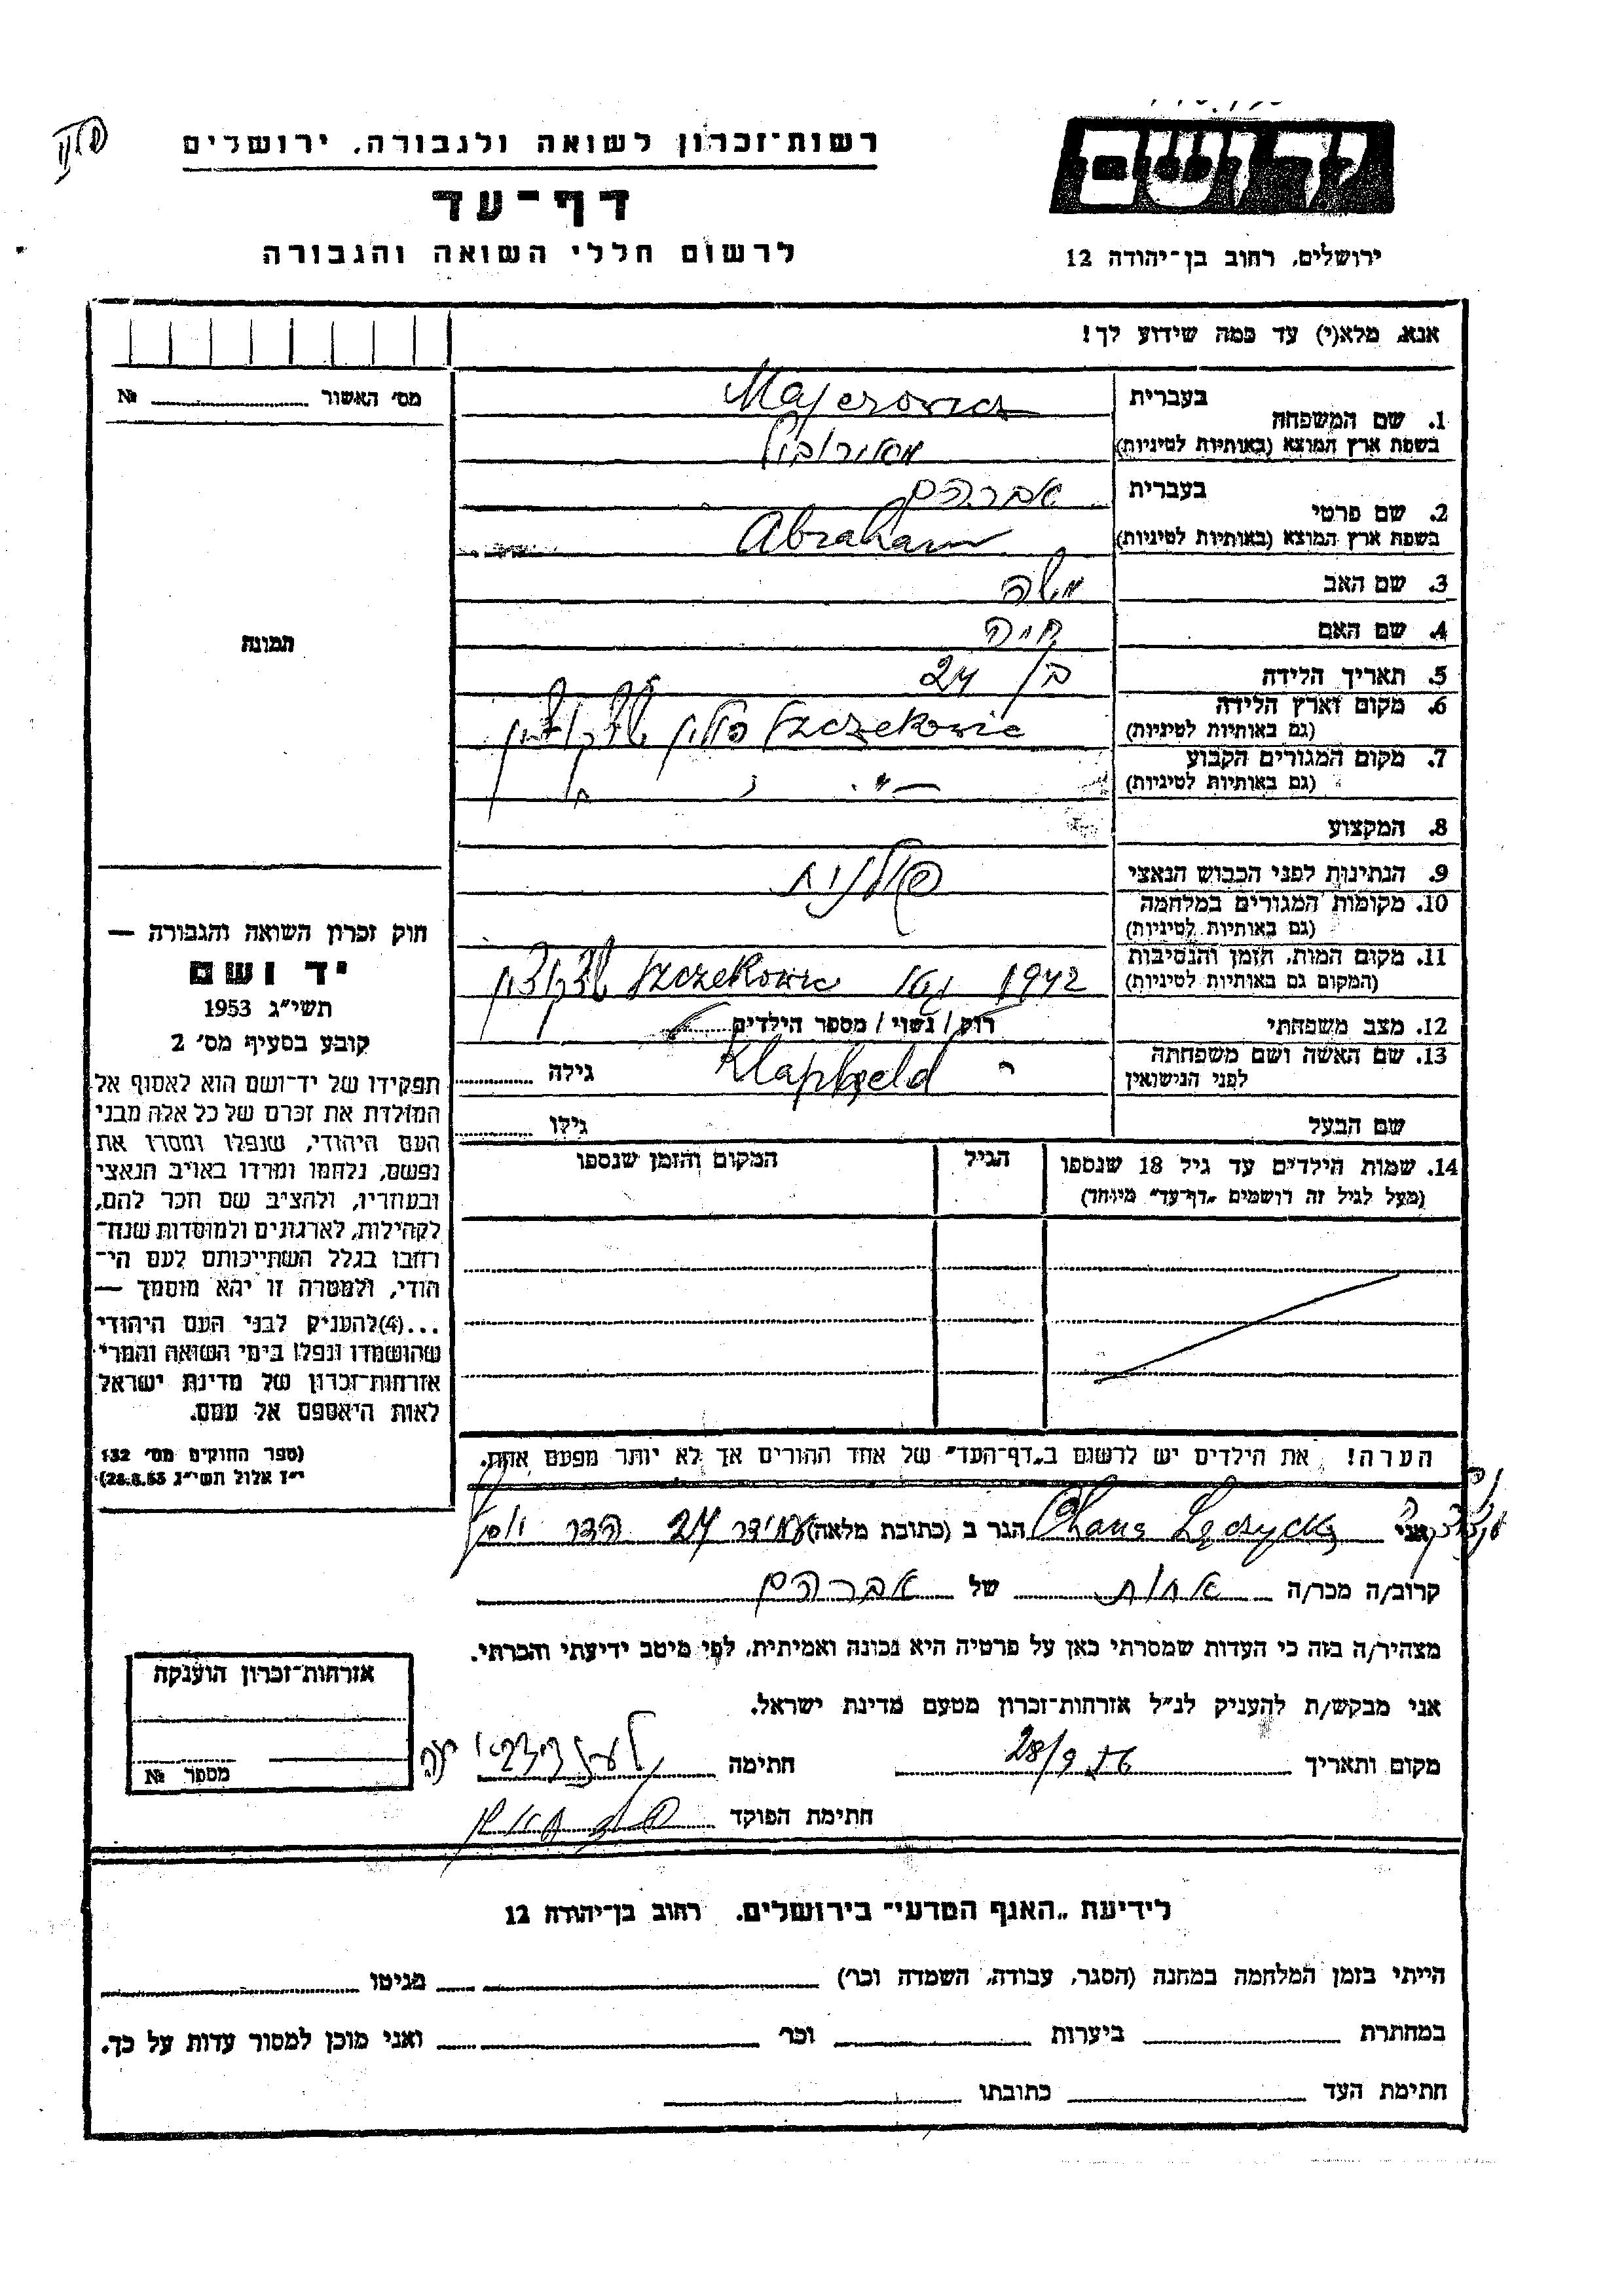 רשות־זכרון לשואה ולגבורה, ירושלים
דף־עד
לרשום חללי השואה והגבורה
יד ושם
ירושלים, רחוב בן־יהודה 12
אנא, מלא(י) עד כמה שידוע לך!
מס' האשור №
תמונה
1. שם המשפחה
בעברית Majerowicz
בשפת ארץ המוצא (באותיות לטיניות) מאירוביץ
2. שם פרטי
בעברית אברהם
בשפת ארץ המוצא (באותיות לטיניות) Abraham
3. שם האב משה
4. שם האם חיה
5. תאריך הלידה בן 24
6. מקום וארץ הלידה
(גם באותיות לטיניות) Szczekowic פולין
7. מקום המגורים הקבוע
(גם באותיות לטיניות)
8. המקצוע
9. הנתינות לפני הכבוש הנאצי פולנית
10. מקומות המגורים במלחמה
(גם באותיות לטיניות)
11. מקום המות, הזמן והנסיבות
(המקום גם באותיות לטיניות) 1942 Szczekowic
12. מצב משפחתי רווק / נשוי / מספר הילדים
13. שם האשה ושם משפחתה
לפני הנישואין גילה
שם הבעל גילו
14. שמות הילדים עד גיל 18 שנספו
(מעל לגיל זה רושמים "דף־עד" מיוחד)
הגיל
המקום והזמן שנספו
הערה! את הילדים יש לרשום ב"דף־העד" של אחד ההורים אך לא יותר מפעם אחת.
חוק זכרון השואה והגבורה —
יד ושם
תשי"ג 1953
קובע בסעיף מס' 2
תפקידו של יד־ושם הוא לאסוף אל
המולדת את זכרם של כל אלה מבני
העם היהודי, שנפלו ומסרו את
נפשם, נלחמו ומרדו באויב הנאצי
ובעוזריו, ולהציב שם וזכר להם,
לקהילות, לארגונים ולמוסדות שנח־
רבו בגלל השתייכותם לעם הי־
הודי, ולמטרה זו יהא מוסמך —
...(4) להעניק לבני העם היהודי
שהושמדו ונפלו בימי השואה והמרי
אזרחות־זכרון של מדינת ישראל
לאות היאספם אל עמם.
(ספר החוקים מס' 132
י"ז אלול תשי"ג 28.8.53)
אני Chana Łęczycka הגר ב (כתובת מלאה) 27 הדר יוסף
קרוב/ה מכר/ה אחות של אברהם
מצהיר/ה בזה כי העדות שמסרתי כאן על פרטיה היא נכונה ואמיתית, לפי מיטב ידיעתי והכרתי.
אני מבקש/ת להעניק לנ"ל אזרחות־זכרון מטעם מדינת ישראל.
מקום ותאריך 28/9 חתימה
חתימת הפוקד
אזרחות־זכרון הוענקה
מספר №
לידיעת "האגף המדעי" בירושלים, רחוב בן־יהודה 12
הייתי בזמן המלחמה במחנה (הסגר, עבודה, השמדה וכו') בגיטו
במחתרת ביערות וכו' ואני מוכן למסור עדות על כך.
חתימת העד כתובתו